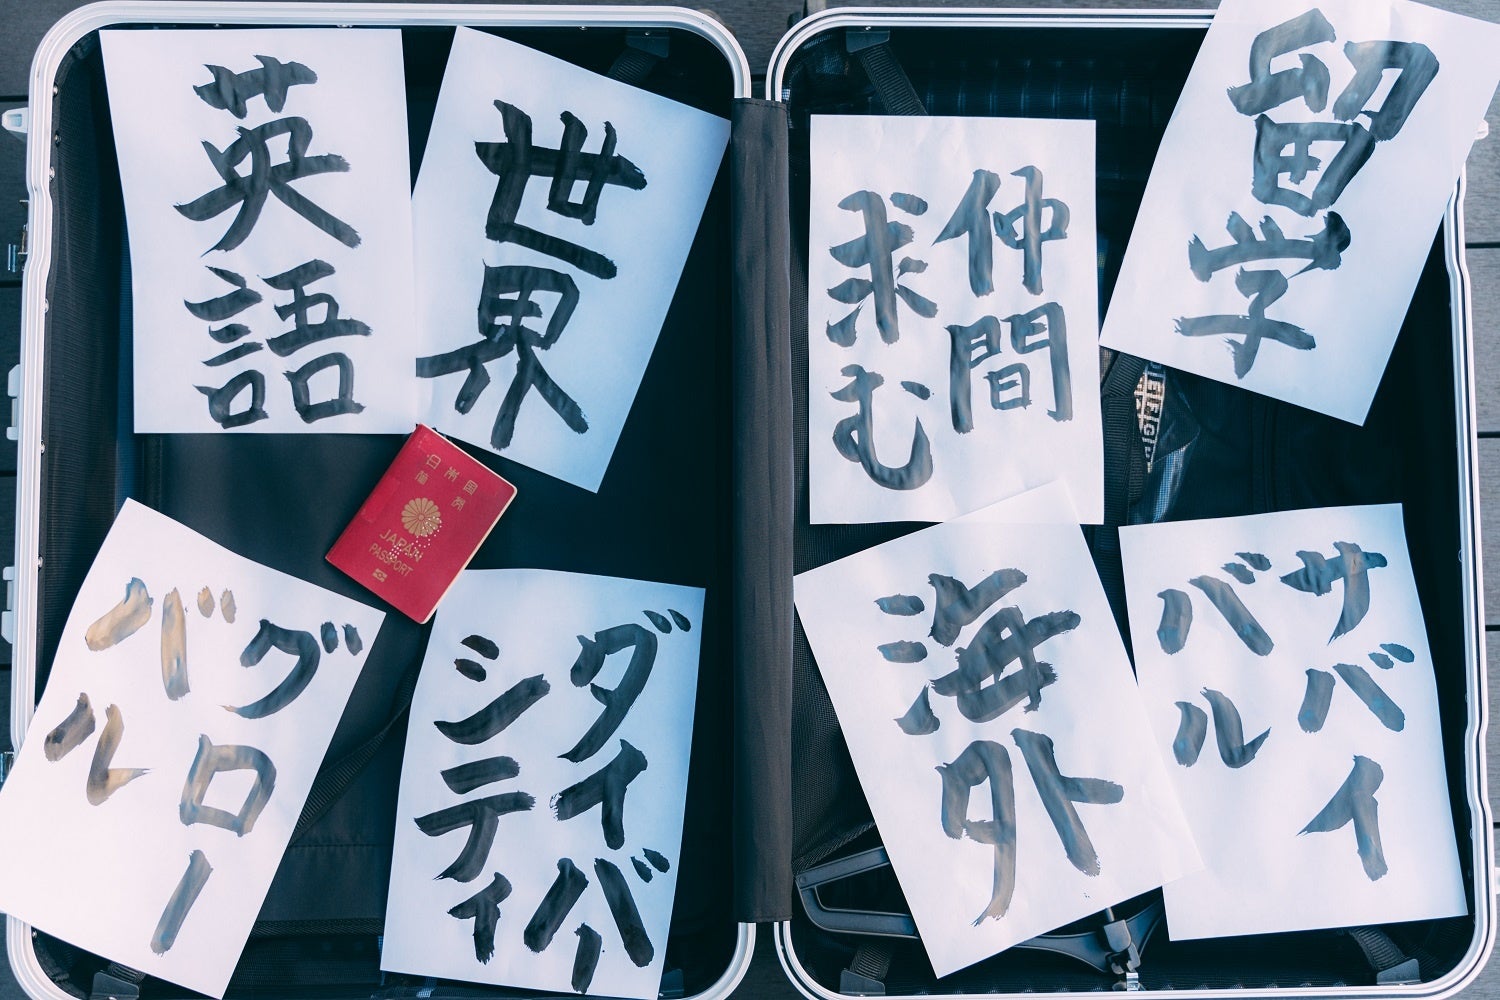 英語
世界
仲間
求む
留学
日本国
旅券
JAPAN
PASSPORT
グロー
バル
ダイバー
シティ
海外
サバイ
バル